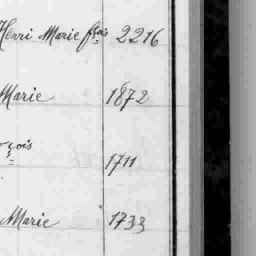 Henri Marie fçois 2216
Marie 1872
çois 1711
Marie 1733